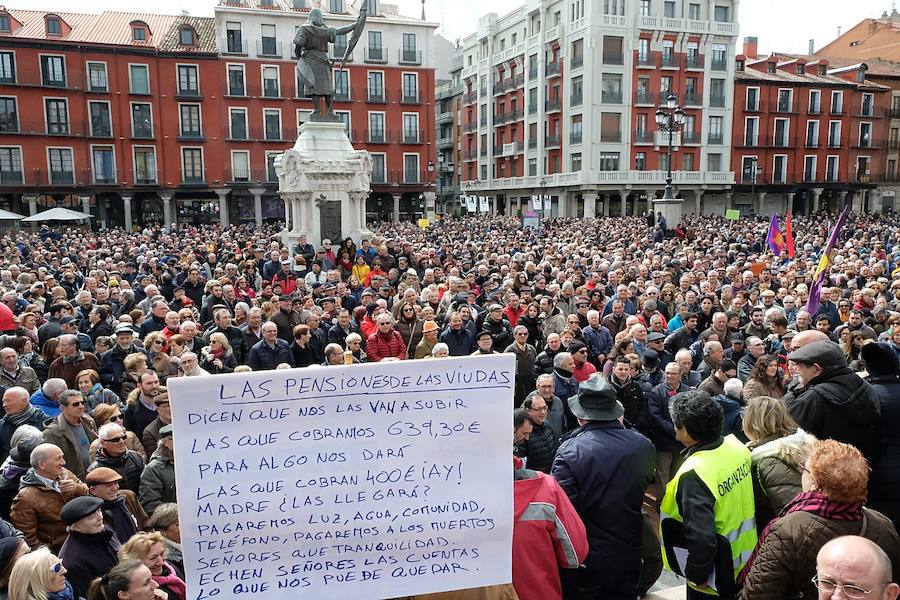 LAS PENSIONES DE LAS VIUDAS
DICEN QUE NOS LAS VAN A SUBIR
LAS QUE COBRAMOS 639,30€
PARA ALGO NOS DARÁ
LAS QUE COBRAN 400€ ¡AY!
MADRE ¿LAS LLEGARÁ?
PAGAREMOS LUZ, AGUA, COMUNIDAD,
TELÉFONO, PAGAREMOS A LOS MUERTOS
SEÑORES QUE TRANQUILIDAD.
ECHEN SEÑORES LAS CUENTAS
LO QUE NOS PUEDE QUEDAR.
ORGANIZACIÓN